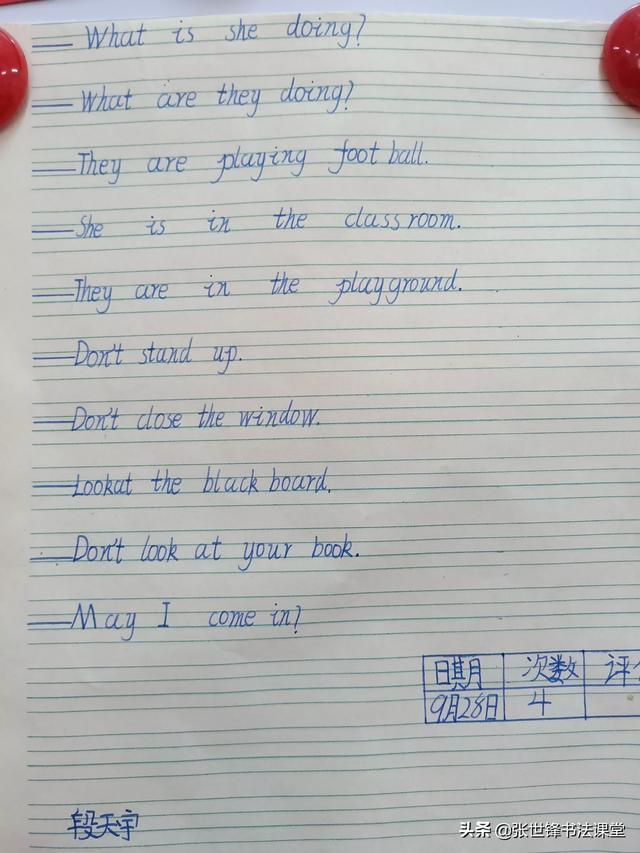 — What is she doing?
— What are they doing?
— They are playing foot ball.
— She is in the class room.
— They are in the playground.
— Don't stand up.
— Don't close the window.
— Lookat the black board.
— Don't look at your book.
— May I come in?
日期 次数 评
9月28日 4
段天宇
头条 @张世锋书法课堂